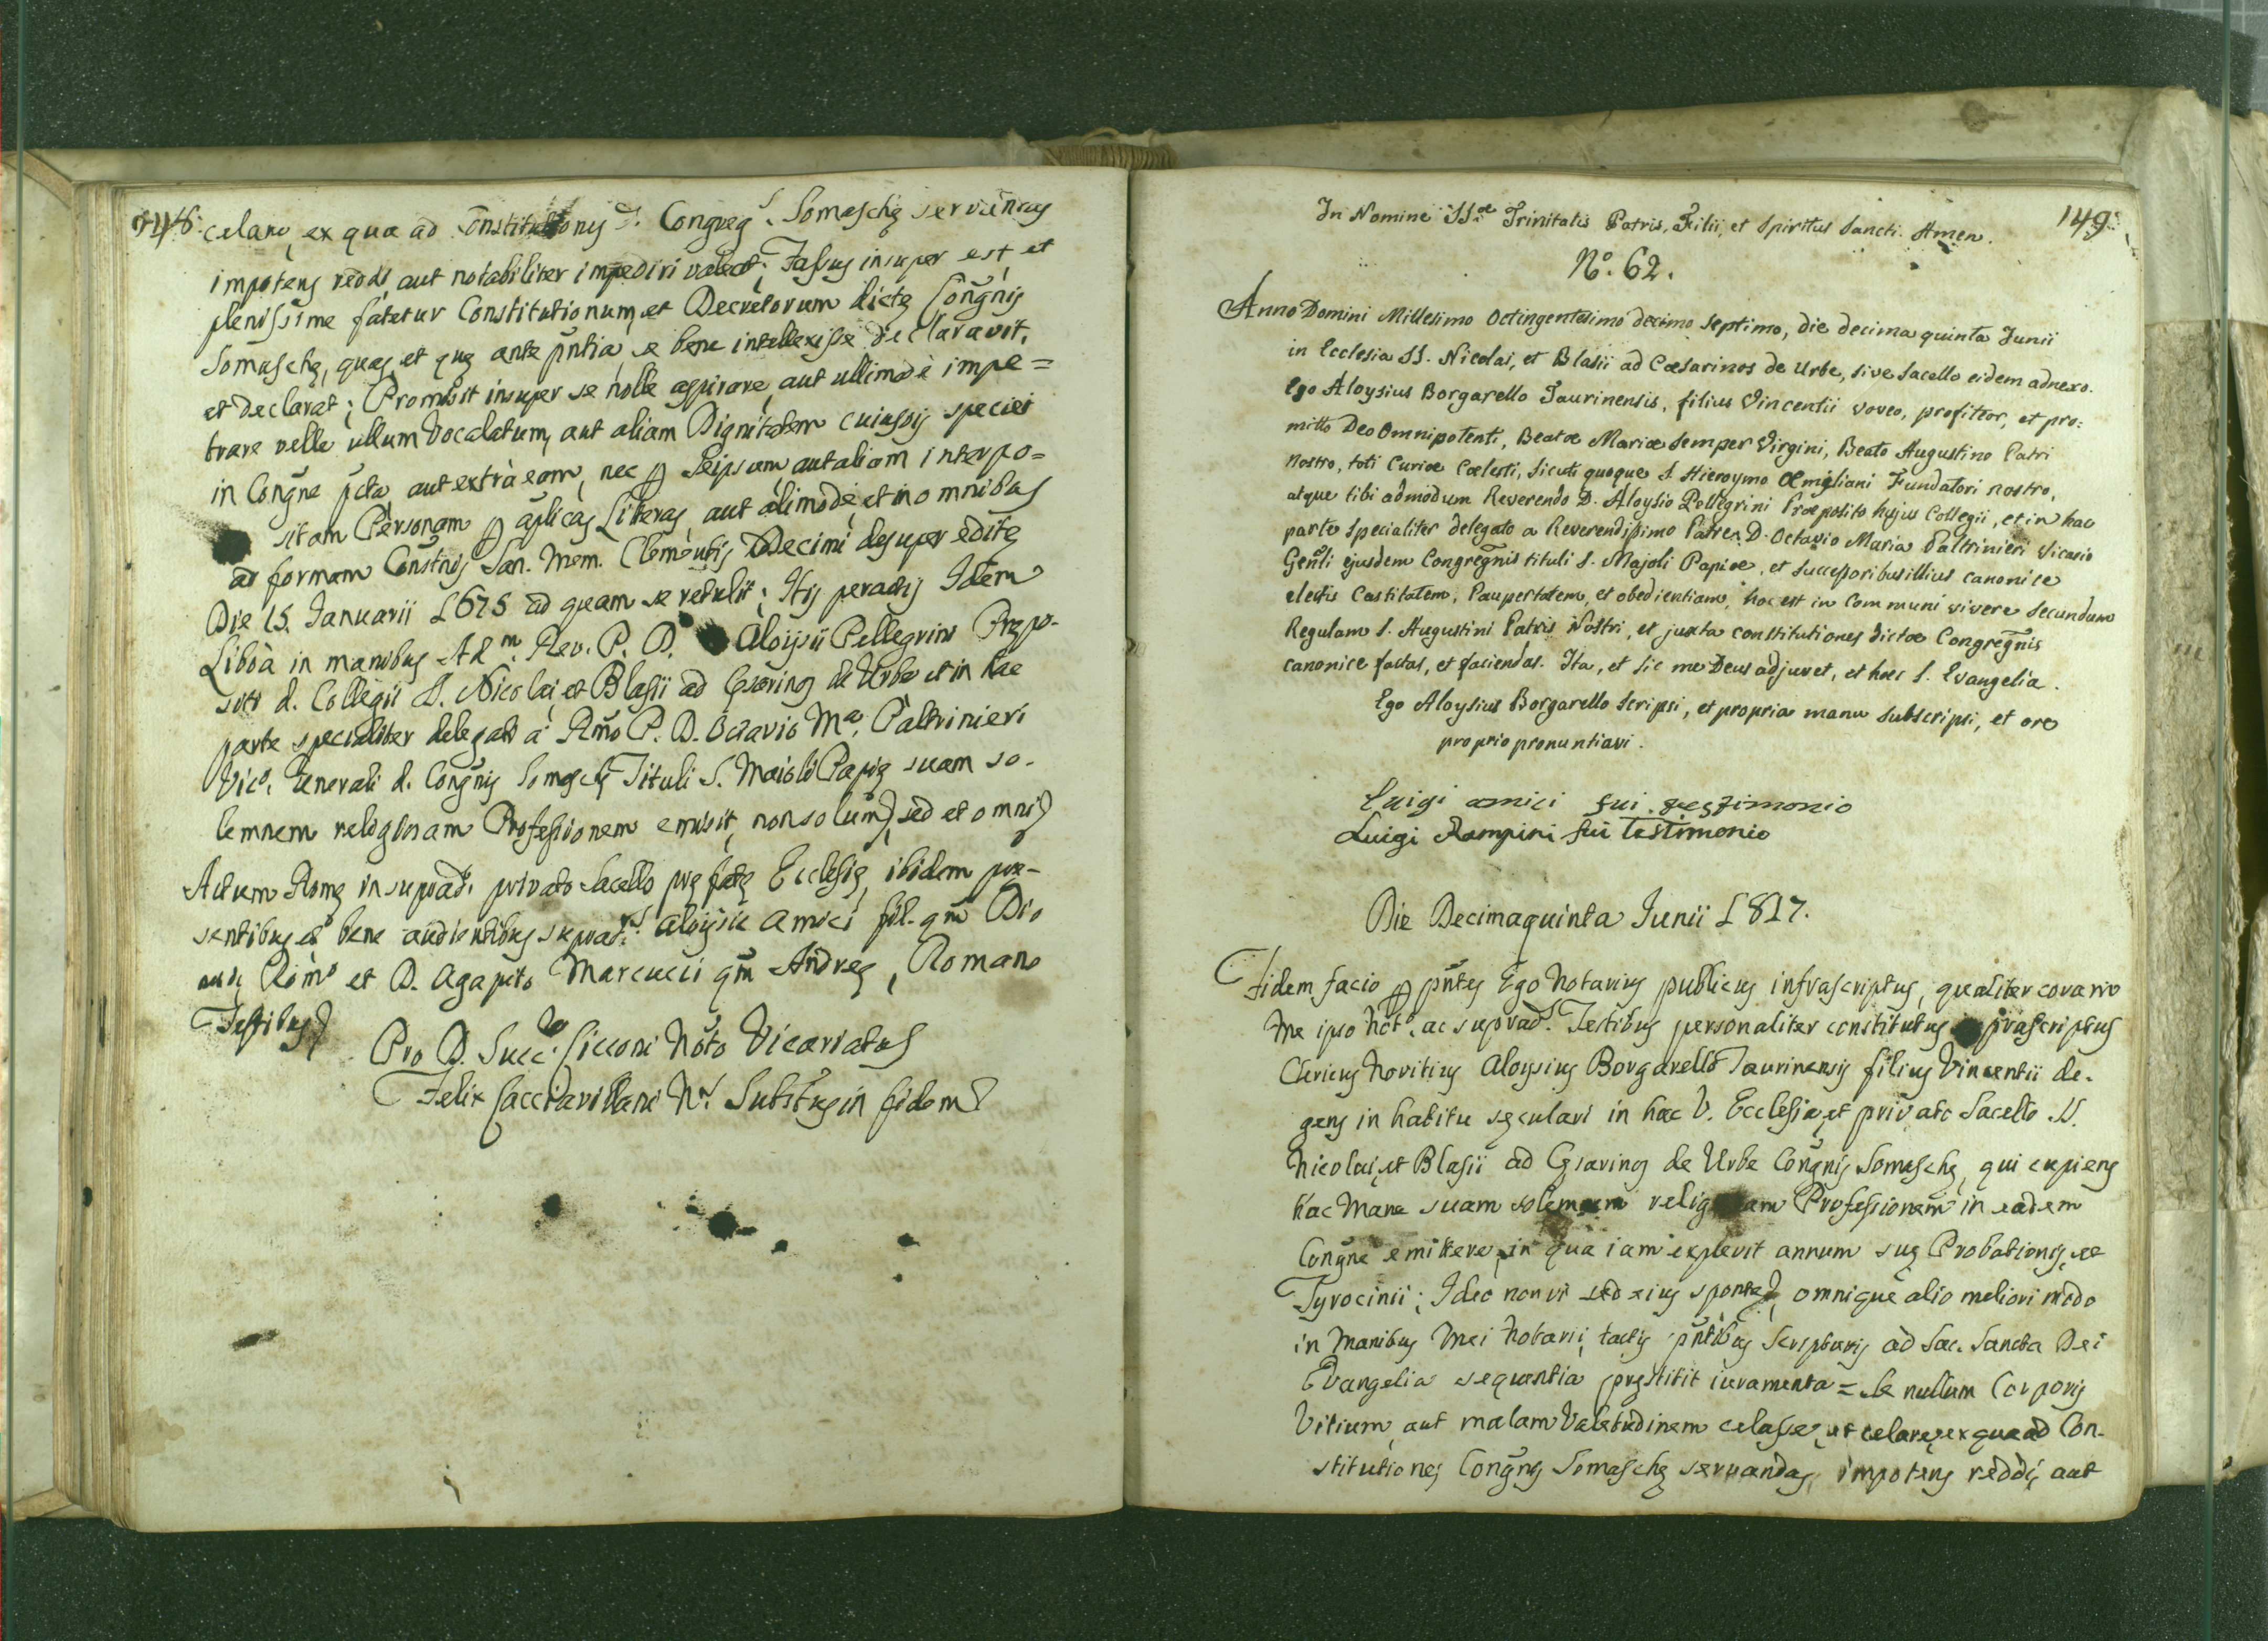 148.
celare, ex qua ad Constitutiones d. Congreg.s Somaschę servandas
impotens reddi, aut notabiliter impediri valeat; Fassus insuper est, et
plenissime fatetur Constitutionum, et Decretorum dictę Congñis
Somaschę, quas, et quę ante pntia se bene intellexisse declaravit,
et declarat; Promisit insuper se nolle aspirare, aut ullimodè impe=
trare velle ullum Vocalatum, aut aliam Dignitatem cuiusvis speciei
in Congñe pcta, aut extrà eam, nec per Seipsum, aut aliam interpo=
sitam Personam per aplicas Literas, aut alimodè, et in omnibus
ad formam Constnis San. Mem. Clementis Decimi desuper editę
Die 15. Januarii 1675 ad quam se retulit; Hijs peractis Idem
Liboà in manibus Adm. Rev. P. D. Aloijsii Pellegrini Prępo-
siti d. Collegii SS. Nicolai, et Blasii ad Cęsarinos de Urbe et in hac
parte specialiter delegati à Rmo P. D. Octavio Ma. Paltrinieri
Vico. Generali d. Congñis Somaschę Tituli S. Maioli Papię suam so-
lemnem religiosam Professionem emisit, non solum, sed et omni
Actum Romę in suprad. privato Sacello pręfatę Ecclesię, ibidem prę-
sentibus et bene audientibus suprad.is Aloijsio Amici fil. qm Dio
Romo et D. Agapito Marcucci qm Andreę, Romano
Testibus
Pro D. Succ. Cicconi Noto Vicariatus
Felix Cacciavillani N. Substus in fidem
149.
In Nomine SSæ Trinitatis Patris, Filii, et Spiritus Sancti. Amen.
No. 62.
Anno Domini Millesimo Octingentesimo decimo septimo, die decima quinta Junii
in Ecclesia SS. Nicolai, et Blasii ad Cæsarinos de Urbe, sive Sacello eidem adnexo.
Ego Aloysius Borgarello Taurinensis, filius Vincentii voveo, profiteor, et pro=
mitto Deo Omnipotenti, Beatæ Mariæ semper Virgini, Beato Augustino Patri
Nostro, toti Curiæ Cœlesti, sicuti quoque S. Hieroymo Æmiliani Fundatori nostro,
atque tibi admodum Reverendo D. Aloysio Pellegrini Præposito hujus Collegii, et in hac
parte specialiter delegato a Reverendissimo Patre D. Octavio Maria Paltrinieri Vicario
Genli ejusdem Congregnis tituli S. Majoli Papiæ, et successoribus illius canonice
electis Castitatem, Paupertatem, et obedientiam, hoc est in Communi vivere secundum
Regulam S. Augustini Patris Nostri, et juxta constitutiones dictæ Congregnis
canonice factas, et faciendas. Ita, et sic me Deus adjuvet, et hæc S. Evangelia.
Ego Aloysius Borgarello scripsi, et propria manu subscripsi, et ore
proprio pronuntiavi.
Luigi amici fui testimonio
Luigi Rampini fui testimonio
Die Decimaquinta Junii 1817.
Fidem facio per pntes Ego Notarius publicus infrascriptus, qualiter coram
me ipso Noto. ac suprad. Testibus personaliter constitutus prascriptus
Clericus Novitius Aloysius Borgarello Taurinensis filius Vincentii de-
gens in habitu sęculari in hac V. Ecclesia, et privato Sacello SS.
Nicolai, et Blasii ad Cęsarinos de Urbe Congñis Somaschę, qui cupiens
hac Mane suam solemnem religiosam Professionem in eadem
Congñe emittere, in qua iam explevit annum suę Probationis, et
Tyrocinii; Ideo non vi sed eius sponte, omnique alio meliori modo
in Manibus mei Notarii, tactis pntibus scripturis ad Sac. Sancta Dei
Evangelia sequentia pręstitit iuramenta = Se nullum Corporis
Vitium, aut malam Valetudinem celasse, et celare, ex qua ad Con-
stitutiones Congñis Somaschę servandas, impotens reddi, aut